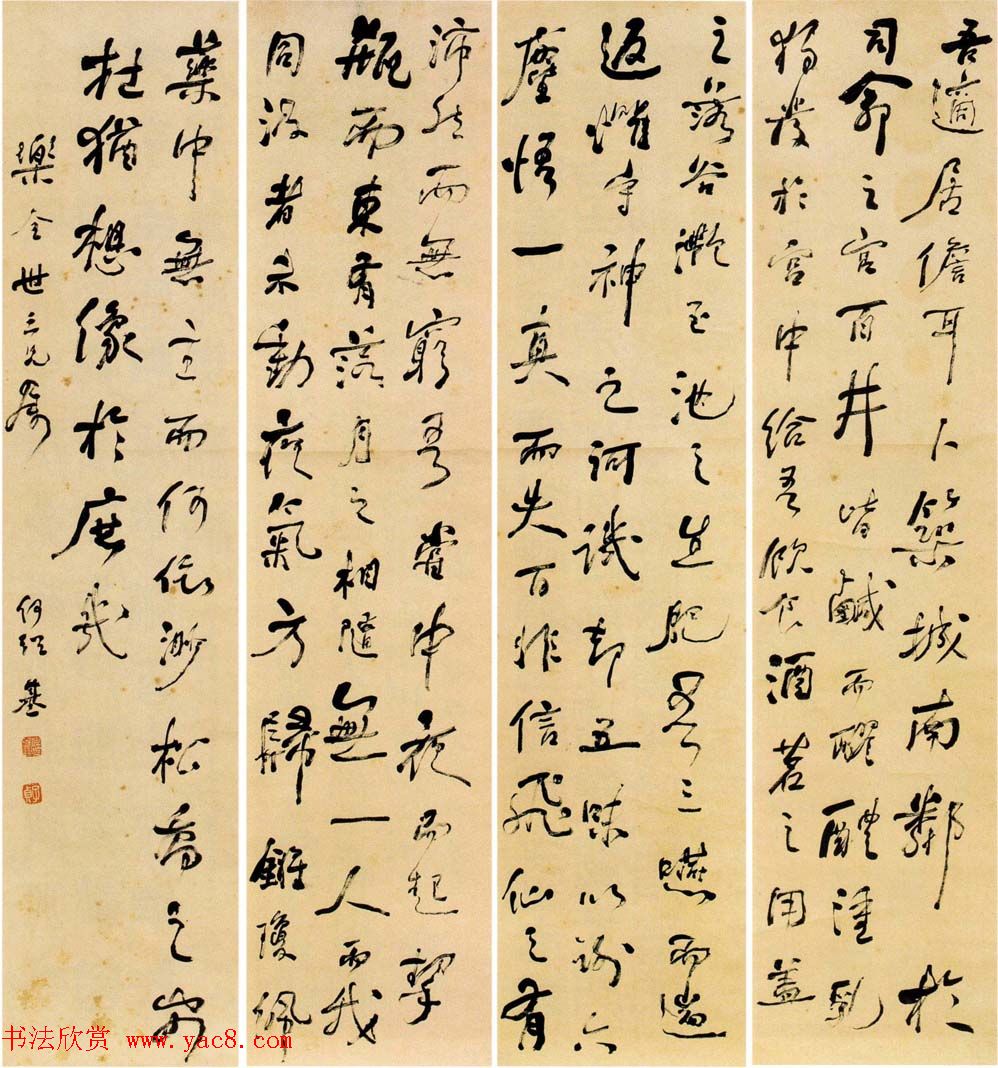 吾適居儋耳卜築城南鄰於
司命之宮百井皆鹹而醪醴湩乳
獨發於宮中給吾飲食酒茗之用蓋
之落谷灩玉池之生肥吾三嚥而遄
返懼守神之訶譏却五味以謝六
塵悟一真而失百非信飛仙之有
沛然而無窮吾嘗中夜而起挈
瓶而東有落月之相隨無一人而我
同汲者未動夜氣方歸鏘瓊佩
藥中無主而何依渺松喬之安
在猶想像於庶幾
樂全世三兄屬 何紹基
书法欣赏 www.yac8.com